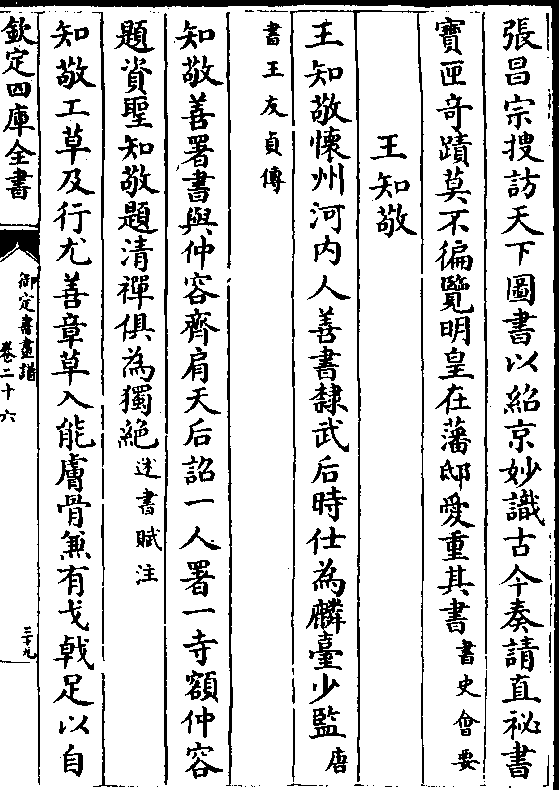 張昌宗搜訪天下圖書以紹京妙識古今奏請直祕書
寶匣竒蹟莫不徧覽明皇在藩邸愛重其書書史會要
王知敬
王知敬懷州河内人善書隸武后時仕為麟臺少監唐
書王友貞傳
知敬善署書與仲容齊肩天后詔一人署一寺額仲容
題資聖知敬題清禪俱為獨絶述書賦注
知敬工草及行尤善章草入能膚骨兼有戈戟足以自
欽定四庫全書
御定書畫譜
卷二十六
二十九